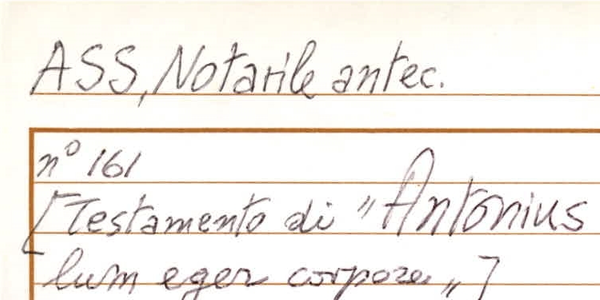 ASS, Notarile antec.
n° 161
[Testamento di "Antonius
lum eger corpore"]